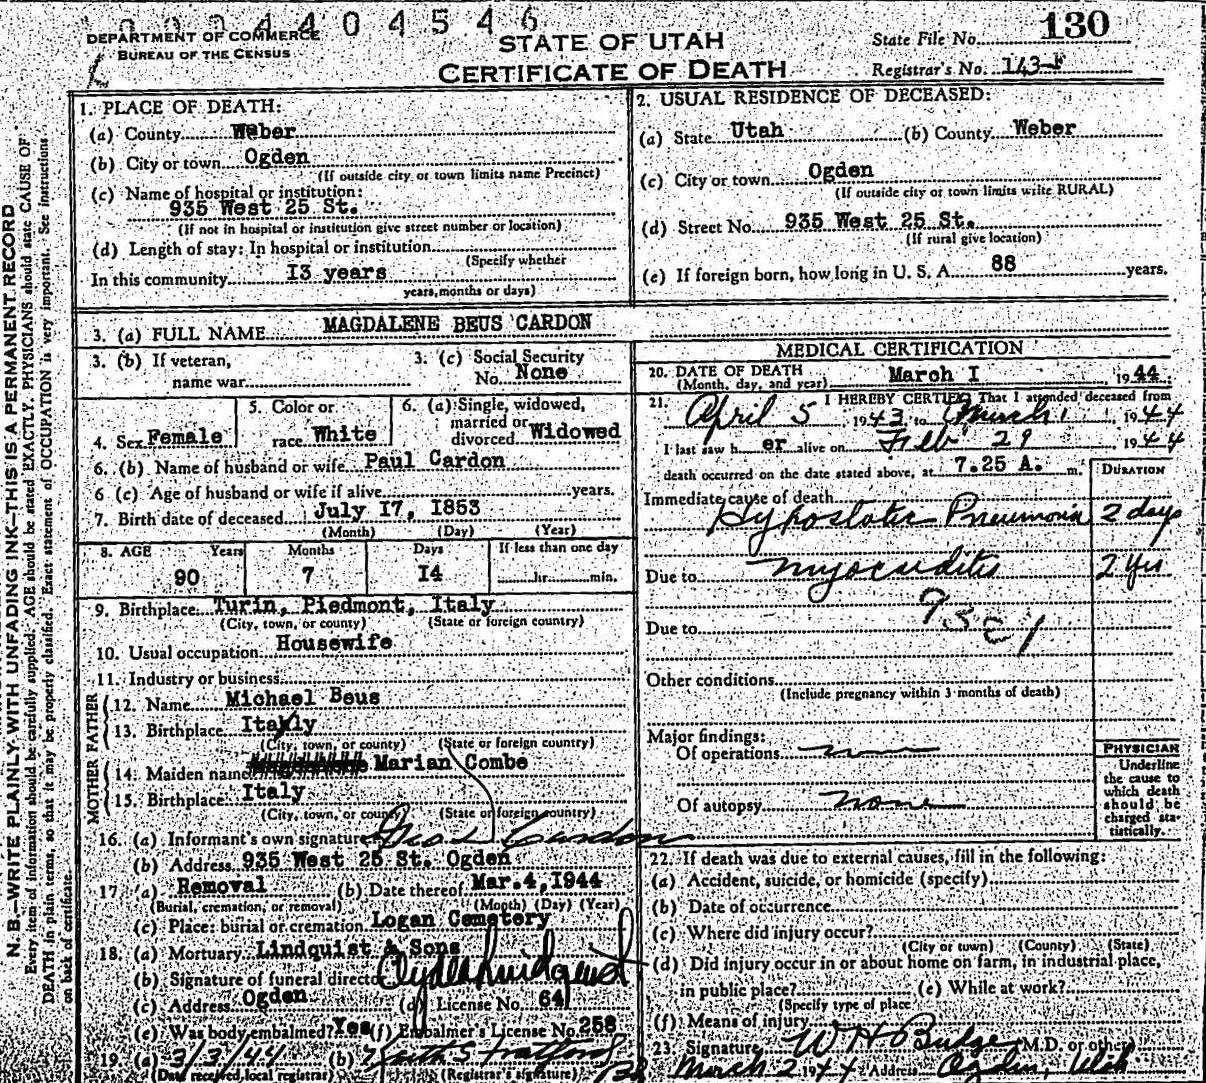 0004404546
DEPARTMENT OF COMMERCE
BUREAU OF THE CENSUS
STATE OF UTAH
CERTIFICATE OF DEATH
State File No. 130
Registrar's No. 143
N. B.—WRITE PLAINLY WITH UNFADING INK—THIS IS A PERMANENT RECORD
Every item of information should be carefully supplied. AGE should be stated EXACTLY. PHYSICIANS should state CAUSE OF
DEATH in plain terms, so that it may be properly classified. Exact statement of OCCUPATION is very important. See instructions
on back of certificate.
1. PLACE OF DEATH:
(a) County Weber
(b) City or town Ogden
(If outside city or town limits name Precinct)
(c) Name of hospital or institution:
935 West 25 St.
(If not in hospital or institution give street number or location)
(d) Length of stay: In hospital or institution
(Specify whether
In this community 13 years
years, months or days)
2. USUAL RESIDENCE OF DECEASED:
(a) State Utah (b) County Weber
(c) City or town Ogden
(If outside city or town limits write RURAL)
(d) Street No. 935 West 25 St.
(If rural give location)
(e) If foreign born, how long in U. S. A. 88 years.
3. (a) FULL NAME MAGDALENE BEUS CARDON
3. (b) If veteran,
name war
3. (c) Social Security
No. None
4. Sex Female
5. Color or
race White
6. (a) Single, widowed,
married or
divorced Widowed
6. (b) Name of husband or wife Paul Cardon
6 (c) Age of husband or wife if alive years.
7. Birth date of deceased July 17, 1853
(Month) (Day) (Year)
8. AGE Years Months Days If less than one day
90 7 14 hr. min.
9. Birthplace Turin, Piedmont, Italy
(City, town, or county) (State or foreign country)
10. Usual occupation Housewife
11. Industry or business
FATHER
12. Name Michael Beus
13. Birthplace Italy
(City, town, or county) (State or foreign country)
MOTHER
14. Maiden name Marian Combe
15. Birthplace Italy
(City, town, or county) (State or foreign country)
16. (a) Informant's own signature Cardon
(b) Address 935 West 25 St. Ogden
17 (a) Removal (b) Date thereof Mar. 4, 1944
(Burial, cremation, or removal) (Month) (Day) (Year)
(c) Place: burial or cremation Logan Cemetery
18. (a) Mortuary Lindquist & Sons
(b) Signature of funeral director Clyde Lindquist
(c) Address Ogden (d) License No. 641
(e) Was body embalmed? Yes (f) Embalmer's License No. 258
19 (a) 3/3/44 (b)
(Date received local registrar) (Registrar's signature)
MEDICAL CERTIFICATION
20. DATE OF DEATH
(Month, day, and year) March 1, 1944
21. I HEREBY CERTIFY, That I attended deceased from
April 5 1943 to March 1 1944
I last saw her alive on Feb 29 1944
death occurred on the date stated above, at 7.25 A. m.
DURATION
Immediate cause of death
Hypostatic Pneumonia 2 days
Due to myocarditis 2 yrs
Due to
Other conditions
(Include pregnancy within 3 months of death)
Major findings:
Of operations none
Of autopsy none
PHYSICIAN
Underline
the cause to
which death
should be
charged sta-
tistically.
22. If death was due to external causes, fill in the following:
(a) Accident, suicide, or homicide (specify)
(b) Date of occurrence
(c) Where did injury occur?
(City or town) (County) (State)
(d) Did injury occur in or about home on farm, in industrial place,
in public place? (e) While at work?
(Specify type of place
(f) Means of injury
23. Signature W H Budge (M.D. or other)
March 2 1944 Address Ogden, Utah